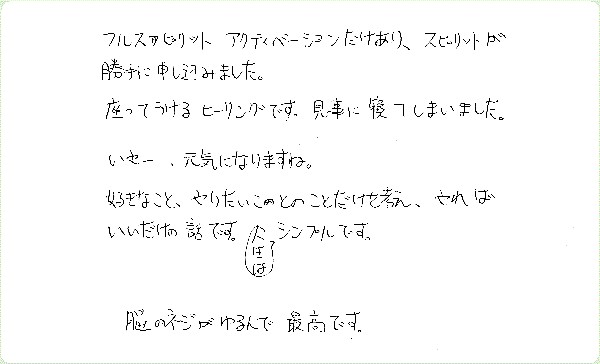 フルスピリット アクティベーションだけあり、スピリットが
勝手に申し込みました。
座ってうけるヒーリングです。見事に寝てしまいました。
いやー、元気になりますね。
好きなこと、やりたいことのことだけを考え、やれば
いいだけの話です。シンプルです。
脳のネジがゆるんで 最高です。